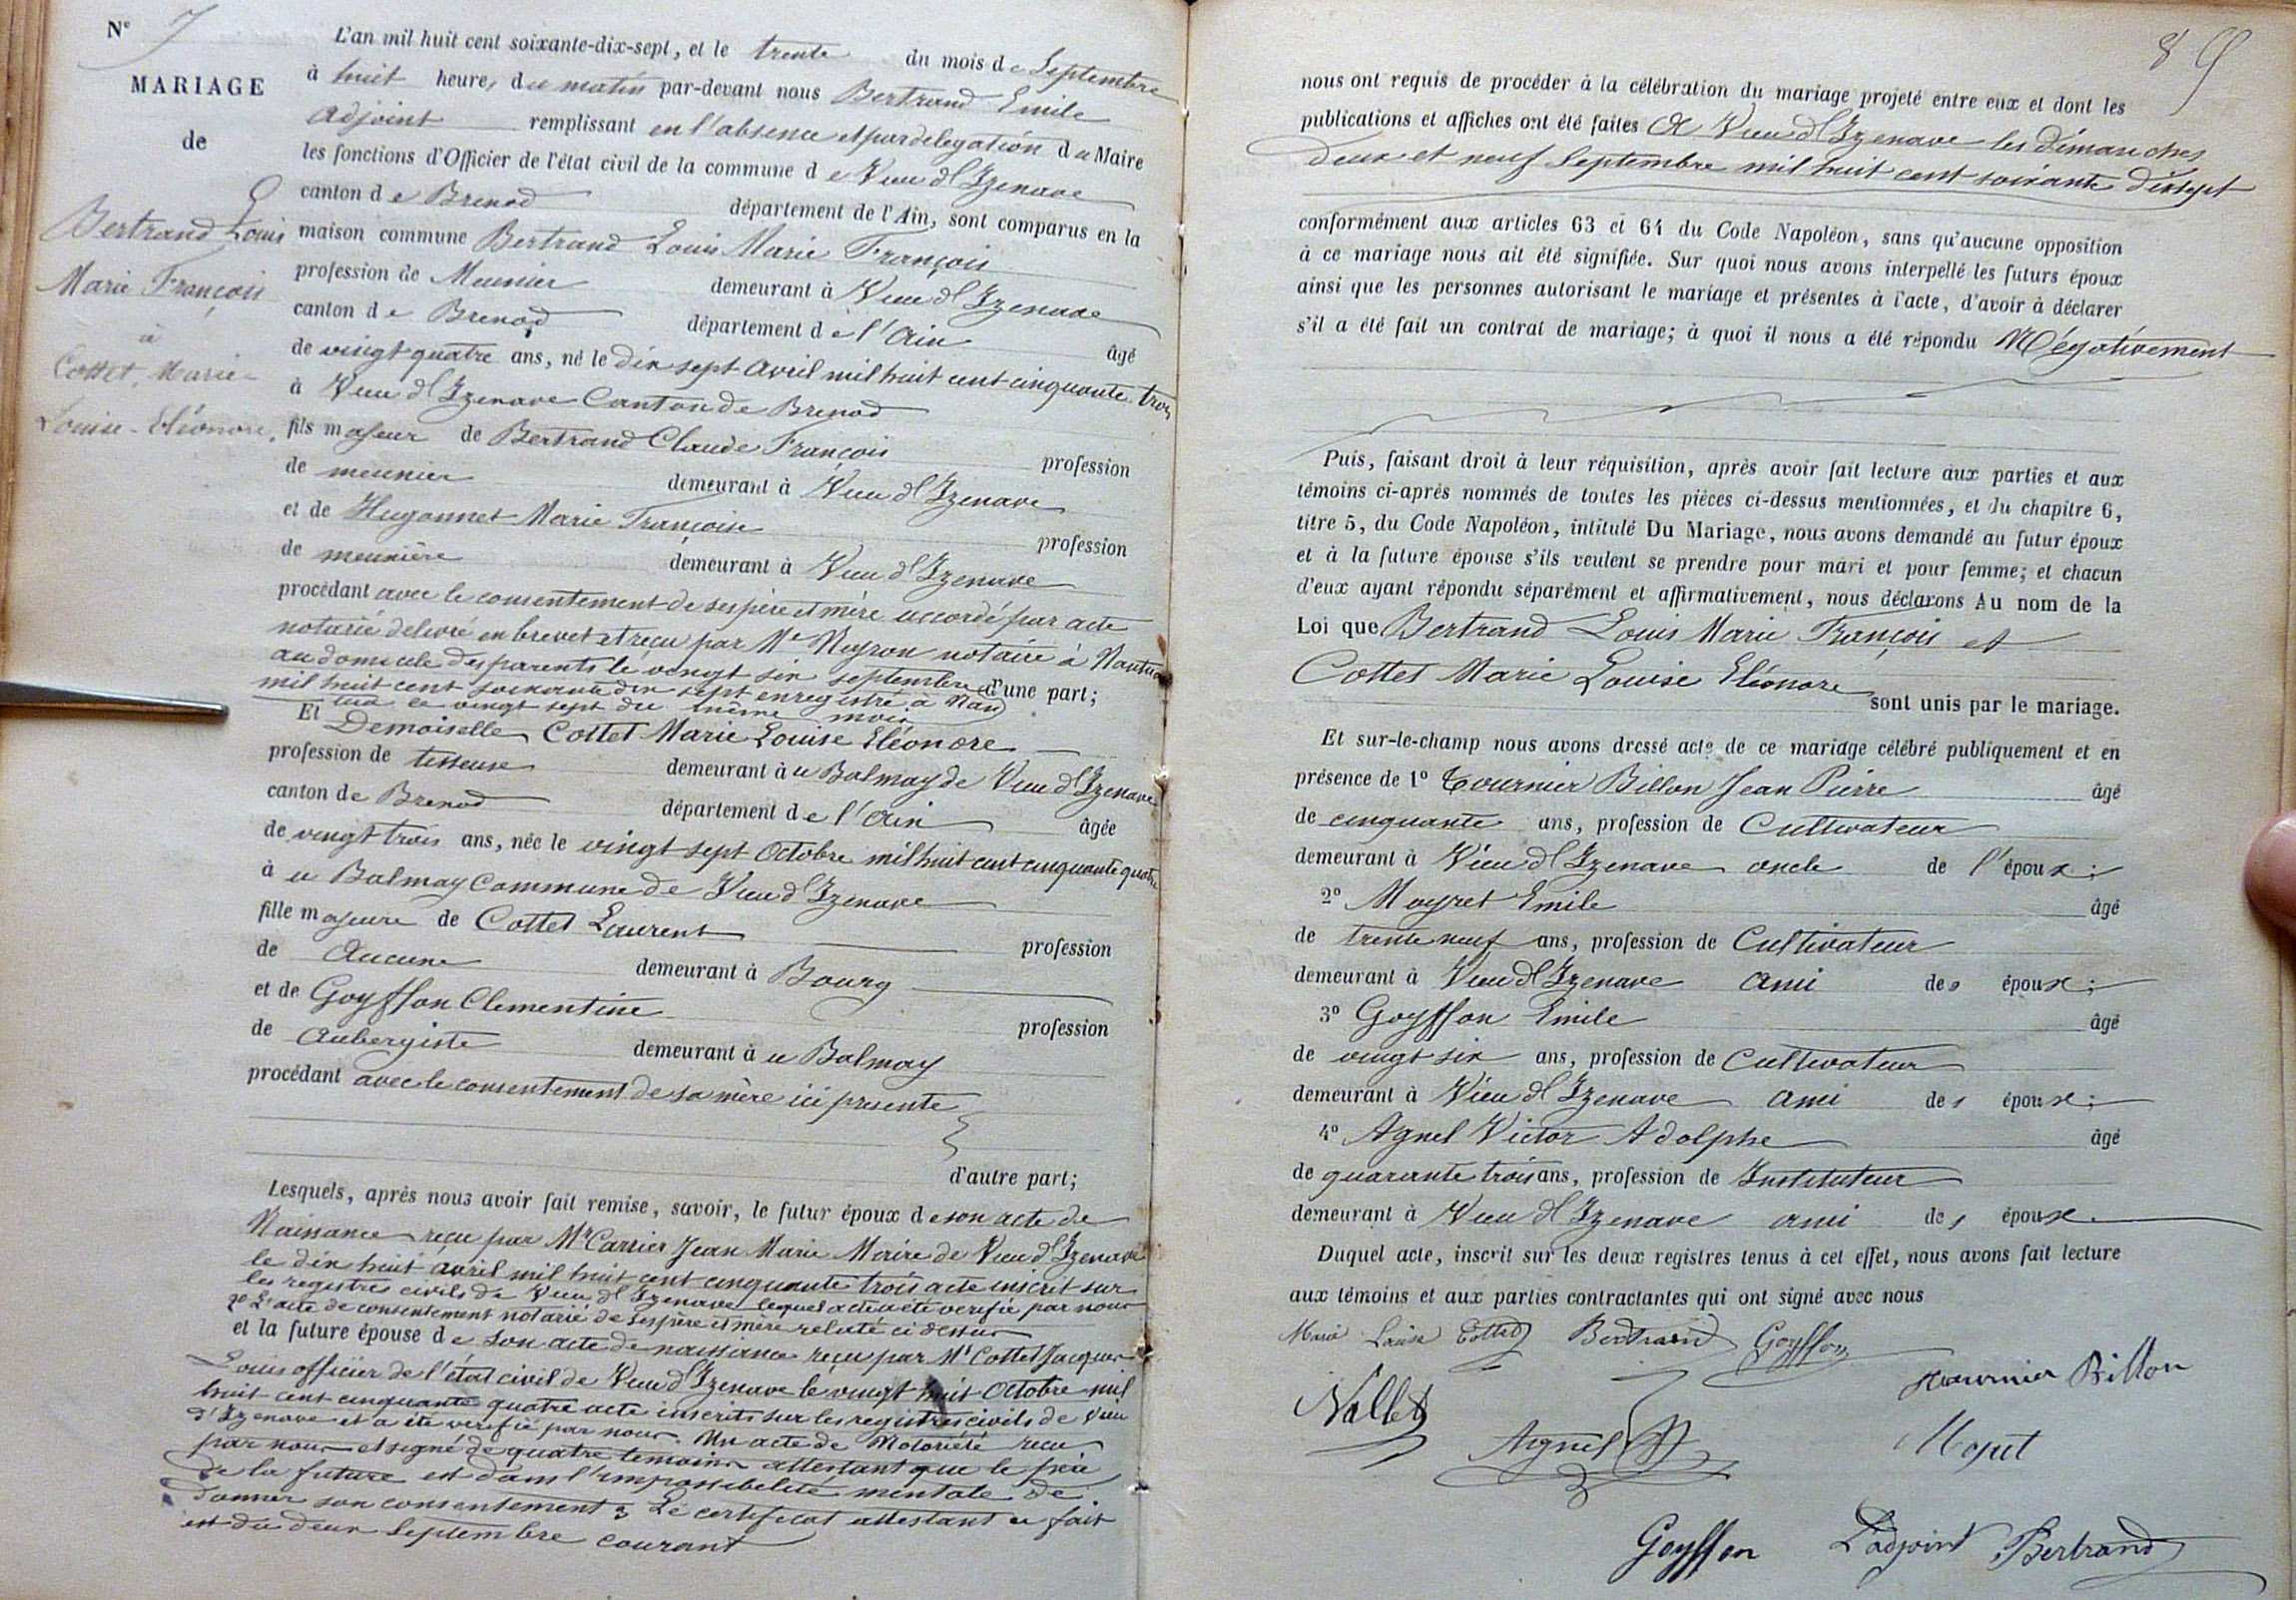 N° 7
MARIAGE
de
Bertrand Louis
Marie François
à
Cottet, Marie-
Louise-Eléonore.
L'an mil huit cent soixante-dix-sept, et le trente du mois de Septembre
à huit heures du matin par-devant nous Bertrand Emile
adjoint remplissant en l'absence et par delegation du Maire
les fonctions d'Officier de l'état civil de la commune de Vieu d'Izenave
canton de Brenod département de l'Ain, sont comparus en la
maison commune Bertrand Louis Marie François
profession de Meunier demeurant à Vieu d'Izenave
canton de Brenod département de l'Ain âgé
de vingt quatre ans, né le dix sept avril mil huit cent cinquante trois
à Vieu d'Izenave Canton de Brenod
fils majeur de Bertrand Claude François profession
de meunier demeurant à Vieu d'Izenave
et de Hugonnet Marie Françoise profession
de meunière demeurant à Vieu d'Izenave
procédant avec le consentement de ses père et mère accordé par acte
notarié délivré en brevet et reçu par Me Neyron notaire à Nantua
au domicile des parents le vingt six septembre d'une part;
mil huit cent soixante dix sept enregistré à Nan
tua le vingt sept du même mois
Et Demoiselle Cottet Marie Louise Eléonore
profession de tisseuse demeurant à u Balmay de Vieu d'Izenave
canton de Brenod département de l'Ain âgée
de vingt trois ans, née le vingt sept Octobre mil huit cent cinquante quatre
à u Balmay Commune de Vieu d'Izenave
fille majeure de Cottet Laurent profession
de Aucune demeurant à Bourg
et de Goyffon Clementine profession
de Aubergiste demeurant à u Balmay
procédant avec le consentement de sa mère ici presente
d'autre part;
Lesquels, après nous avoir fait remise, savoir, le futur époux de son acte de
Naissance reçu par Mr Carrier Jean Marie Maire de Vieu d'Izenave
le dix huit avril mil huit cent cinquante trois acte inscrit sur
les registres civils de Vieu d'Izenave lequel acte a été vérifié par nous
2° L'acte de consentement notarié de ses père et mère relaté ci dessus
et la future épouse de son acte de naissance reçu par Mr Cottet Jacques
Louis officier de l'état civil de Vieu d'Izenave le vingt huit Octobre mil
huit cent cinquante quatre acte inscrits sur les registres civils de Vieu
d'Izenave et a été vérifié par nous. Un acte de Notoriété reçu
par nous et signé de quatre temoins attestant que le père
de la future est dans l'impossibilité mentale de
donner son consentement Le certificat attestant ce fait
est du deux Septembre courant
8
nous ont requis de procéder à la célébration du mariage projeté entre eux et dont les
publications et affiches ont été faites A Vieu d'Izenave les dimanches
deux et neuf Septembre mil huit cent soixante dix sept
conformément aux articles 63 et 64 du Code Napoléon, sans qu'aucune opposition
à ce mariage nous ait été signifiée. Sur quoi nous avons interpellé les futurs époux
ainsi que les personnes autorisant le mariage et présentes à l'acte, d'avoir à déclarer
s'il a été fait un contrat de mariage; à quoi il nous a été répondu Négativement
Puis, faisant droit à leur réquisition, après avoir fait lecture aux parties et aux
témoins ci-après nommés de toutes les pièces ci-dessus mentionnées, et du chapitre 6,
titre 5, du Code Napoléon, intitulé Du Mariage, nous avons demandé au futur époux
et à la future épouse s'ils veulent se prendre pour mari et pour femme; et chacun
d'eux ayant répondu séparément et affirmativement, nous déclarons Au nom de la
Loi que Bertrand Louis Marie François et
Cottet Marie Louise Eléonore sont unis par le mariage.
Et sur-le-champ nous avons dressé acte de ce mariage célébré publiquement et en
présence de 1° Tournier Billon Jean Pierre âgé
de cinquante ans, profession de Cultivateur
demeurant à Vieu d'Izenave oncle de l'époux;
2° Moyret Emile âgé
de trente neuf ans, profession de Cultivateur
demeurant à Vieu d'Izenave ami des époux;
3° Goyffon Emile âgé
de vingt six ans, profession de Cultivateur
demeurant à Vieu d'Izenave ami des époux;
4° Agnel Victor Adolphe âgé
de quarante trois ans, profession de Instituteur
demeurant à Vieu d'Izenave ami des époux
Duquel acte, inscrit sur les deux registres tenus à cet effet, nous avons fait lecture
aux témoins et aux parties contractantes qui ont signé avec nous
Marie Louise Cottet Bertrand Goyffon
Nallet Tournier Billon
Agnel Moyret
Goyffon L'adjoint Bertrand